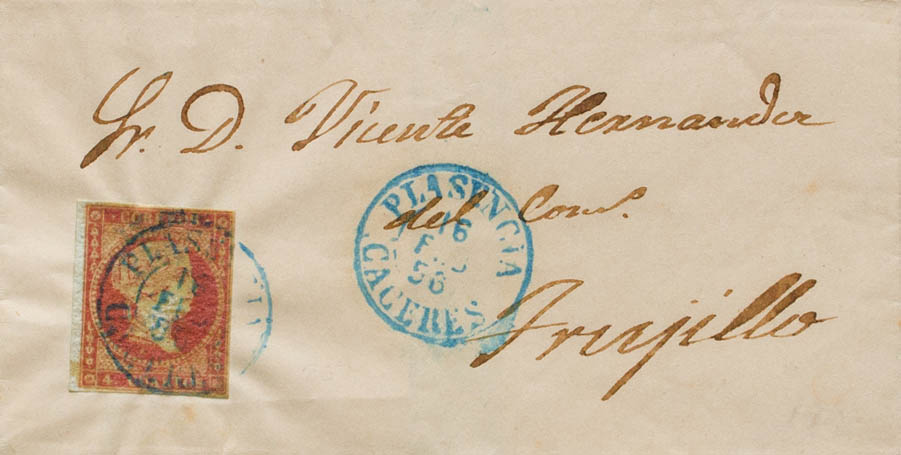 Sr. D. Vicente Hernandez
del Com.º
Trujillo
PLASENCIA
16
56
CACERES
PLAS
4